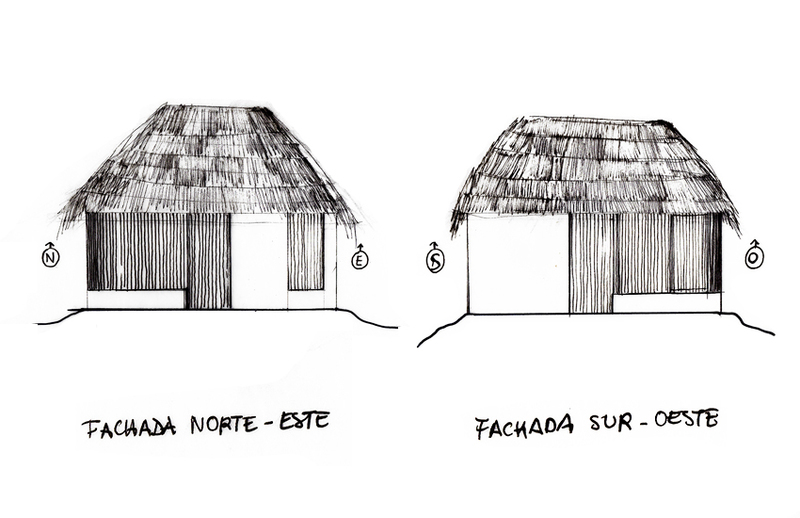 N E
S O
FACHADA NORTE-ESTE
FACHADA SUR-OESTE